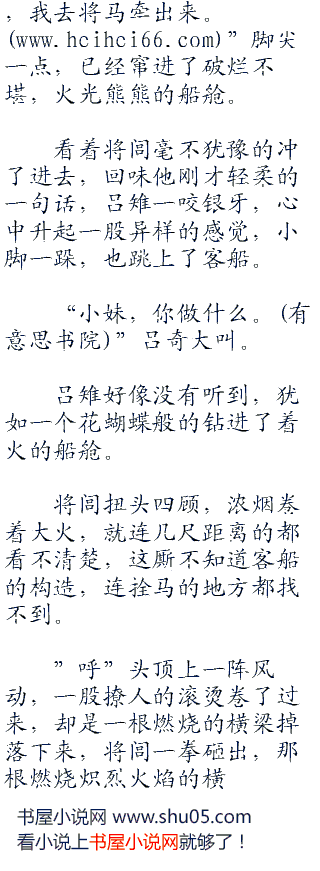 ，我去将马牵出来。
(www.hcihci66.com)”脚尖
一点，已经窜进了破烂不
堪，火光熊熊的船舱。
看着将闾毫不犹豫的冲
了进去，回味他刚才轻柔的
一句话，吕雉一咬银牙，心
中升起一股异样的感觉，小
脚一跺，也跳上了客船。
“小妹，你做什么。(有
意思书院)”吕奇大叫。
吕雉好像没有听到，犹
如一个花蝴蝶般的钻进了着
火的船舱。
将闾扭头四顾，浓烟卷
着大火，就连几尺距离的都
看不清楚，这厮不知道客船
的构造，连拴马的地方都找
不到。
”呼”头顶上一阵风
动，一股撩人的滚烫卷了过
来，却是一根燃烧的横梁掉
落下来，将闾一拳砸出，那
根燃烧炽烈火焰的横
书屋小说网 www.shu05.com
看小说上书屋小说网就够了！